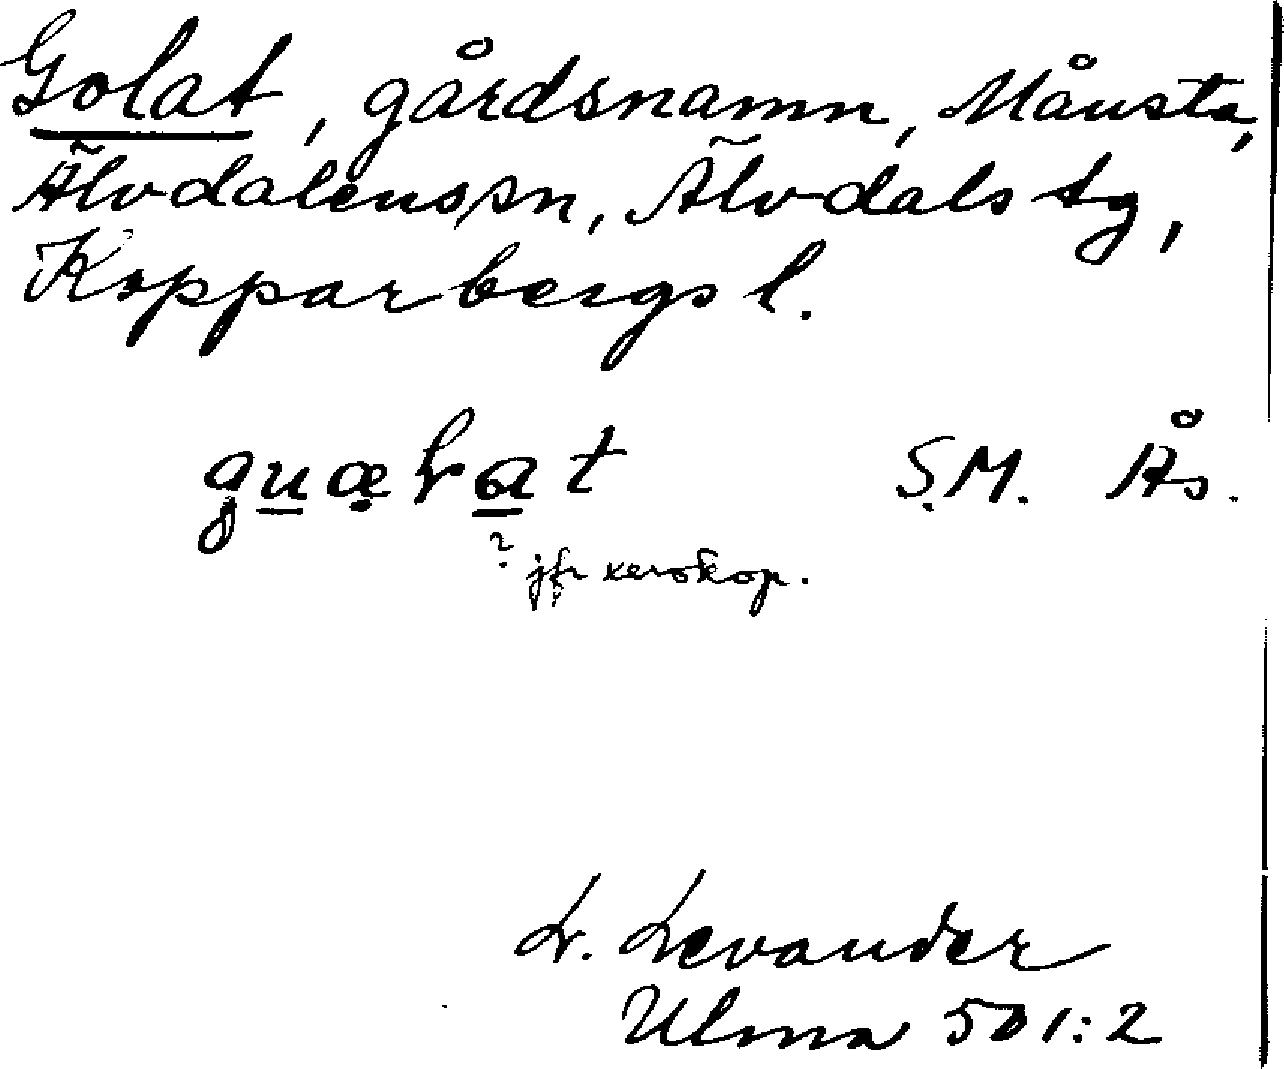 Golat, gårdsnamn, Månsta,
Älvdalens sn, Älvdals tg,
Kopparbergs l.
guælat S.M. Ås.
? jfr
L. Levander
Ulma 501:2